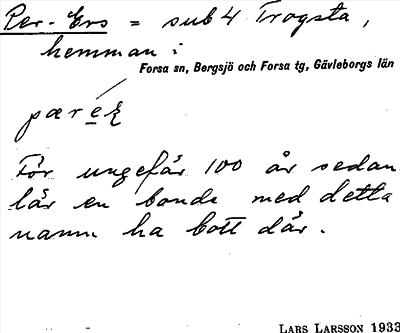 Per-Ers = sub 4 Trogsta,
hemman i
Forsa sn, Bergsjö och Forsa tg, Gävleborgs län
För ungefär 100 år sedan
lär en bonde med detta
namn ha bott där.
LARS LARSSON 1933